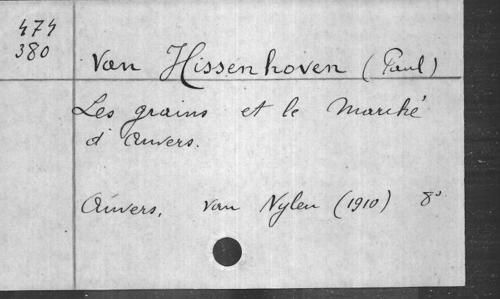 474
380
Van Hissenhoven (Paul)
Les grains et le Marché
d'Anvers.
Anvers, Van Nylen (1910) 8°